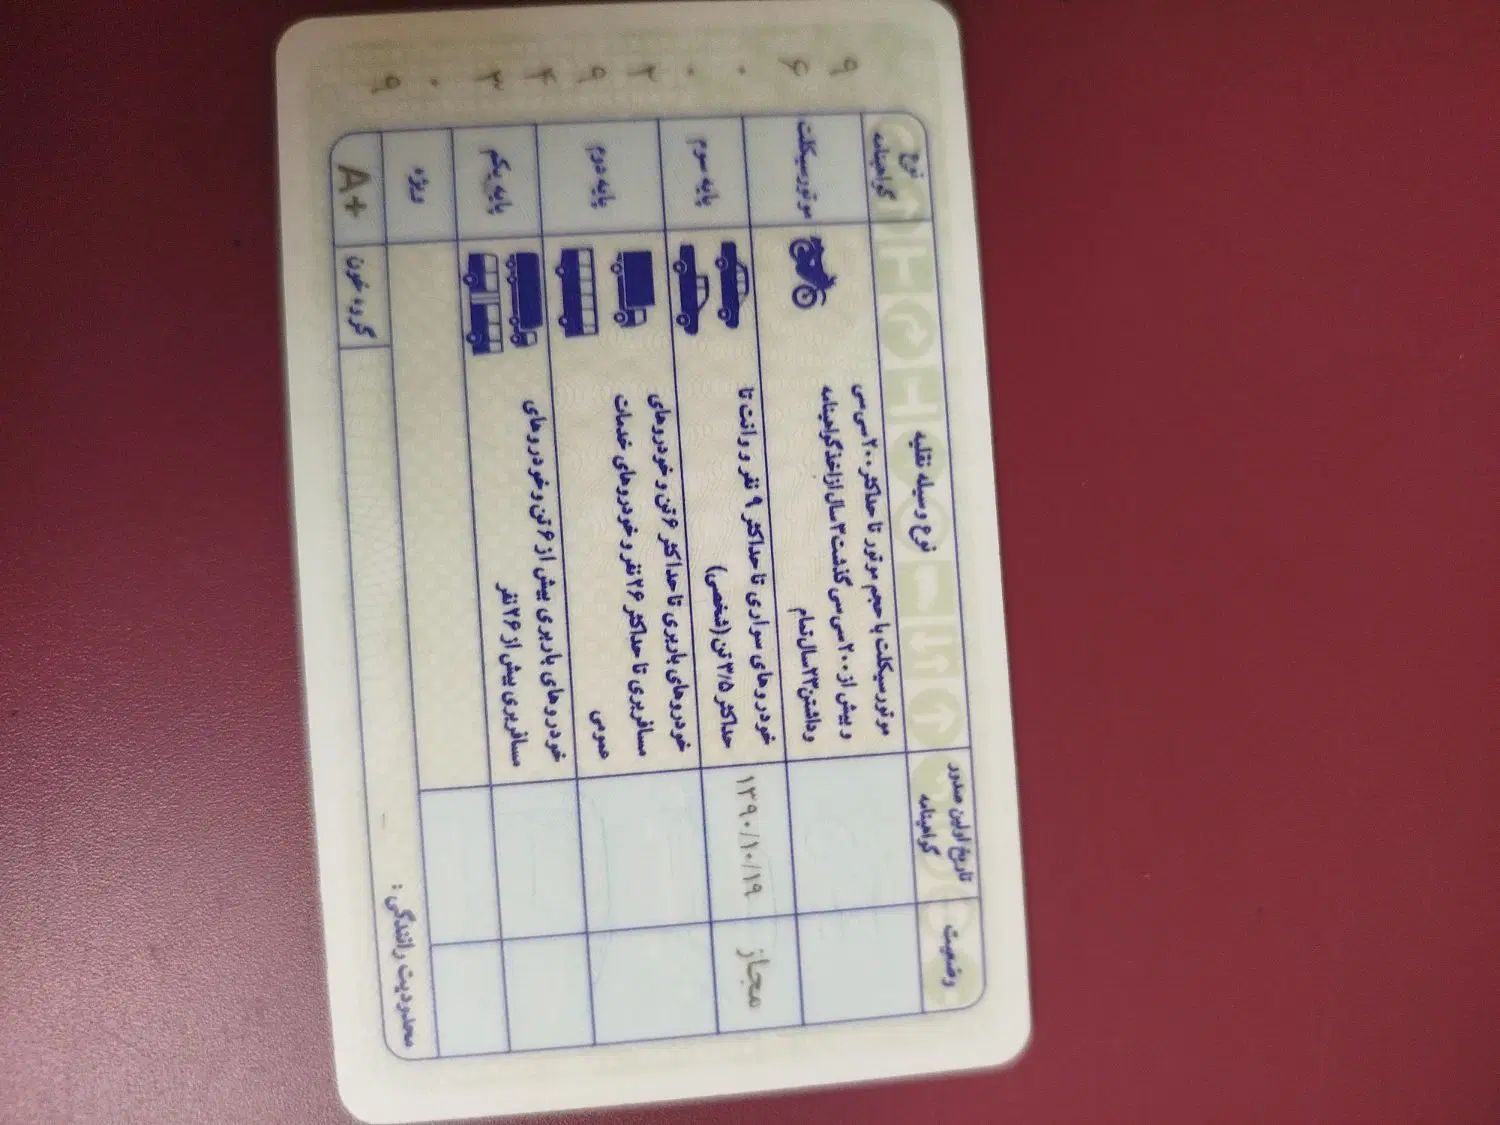 نوع گواهینامه
نوع وسیله نقلیه
تاریخ اولین صدور گواهینامه
وضعیت
موتورسیکلت
موتورسیکلت با حجم موتور تا حداکثر ۲۰۰ سی سی
و بیش از ۲۰۰ سی سی گذشت ۳ سال از اخذ گواهینامه
و داشتن ۲۳ سال تمام
پایه سوم
خودروهای سواری تا حداکثر ۹ نفر و وانت تا
حداکثر ۳/۵ تن (شخصی)
۱۳۹۰/۱۰/۱۹
مجاز
پایه دوم
خودروهای باربری تا حداکثر ۶ تن و خودروهای
مسافربری تا حداکثر ۲۶ نفر و خودروهای خدمات
عمومی
پایه یکم
خودروهای باربری بیش از ۶ تن و خودروهای
مسافربری بیش از ۲۶ نفر
ویژه
A+
گروه خون
محدودیت رانندگی :
۹۶۰۰۲۹۴۳۰۹